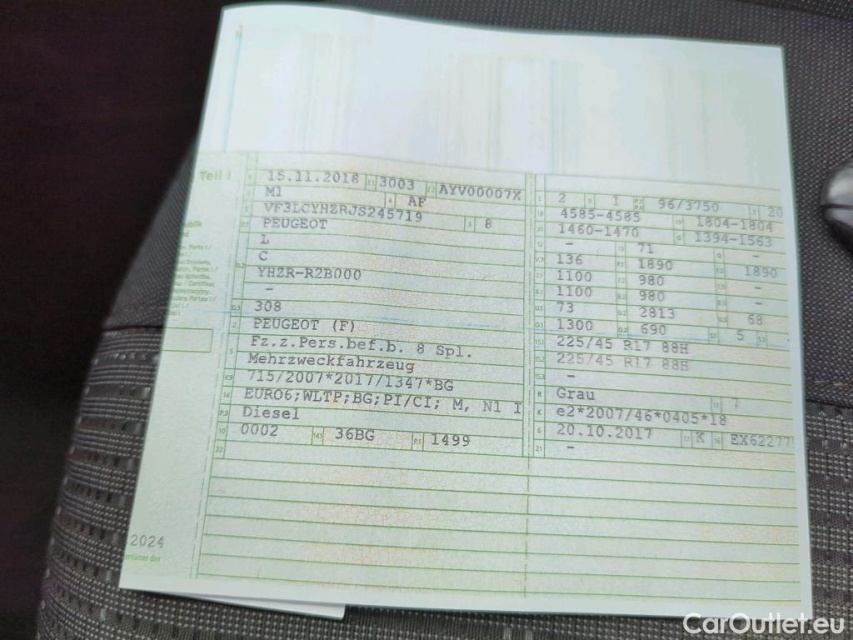 Teil I
15.11.2018 3003 AYV00007X
M1 AF
VF3LCYHZRJS245719 8
PEUGEOT
L
C
YHZR-R2B000
-
308
PEUGEOT (F)
Fz.z.Pers.bef.b. 8 Spl.
Mehrzweckfahrzeug
715/2007*2017/1347*BG
EURO6;WLTP;BG;PI/CI; M, N1 I
Diesel
0002 36BG 1499
2 I 96/3750 20
4585-4585 1804-1804
1460-1470 1394-1563
- 71 -
136 1890 1890
1100 980 -
1100 980 -
73 2813 68
1300 690 5
225/45 R17 88H
225/45 R17 88H
-
Grau 7
e2*2007/46*0405*18
20.10.2017 K EX62277
-
2024
CarOutlet.eu